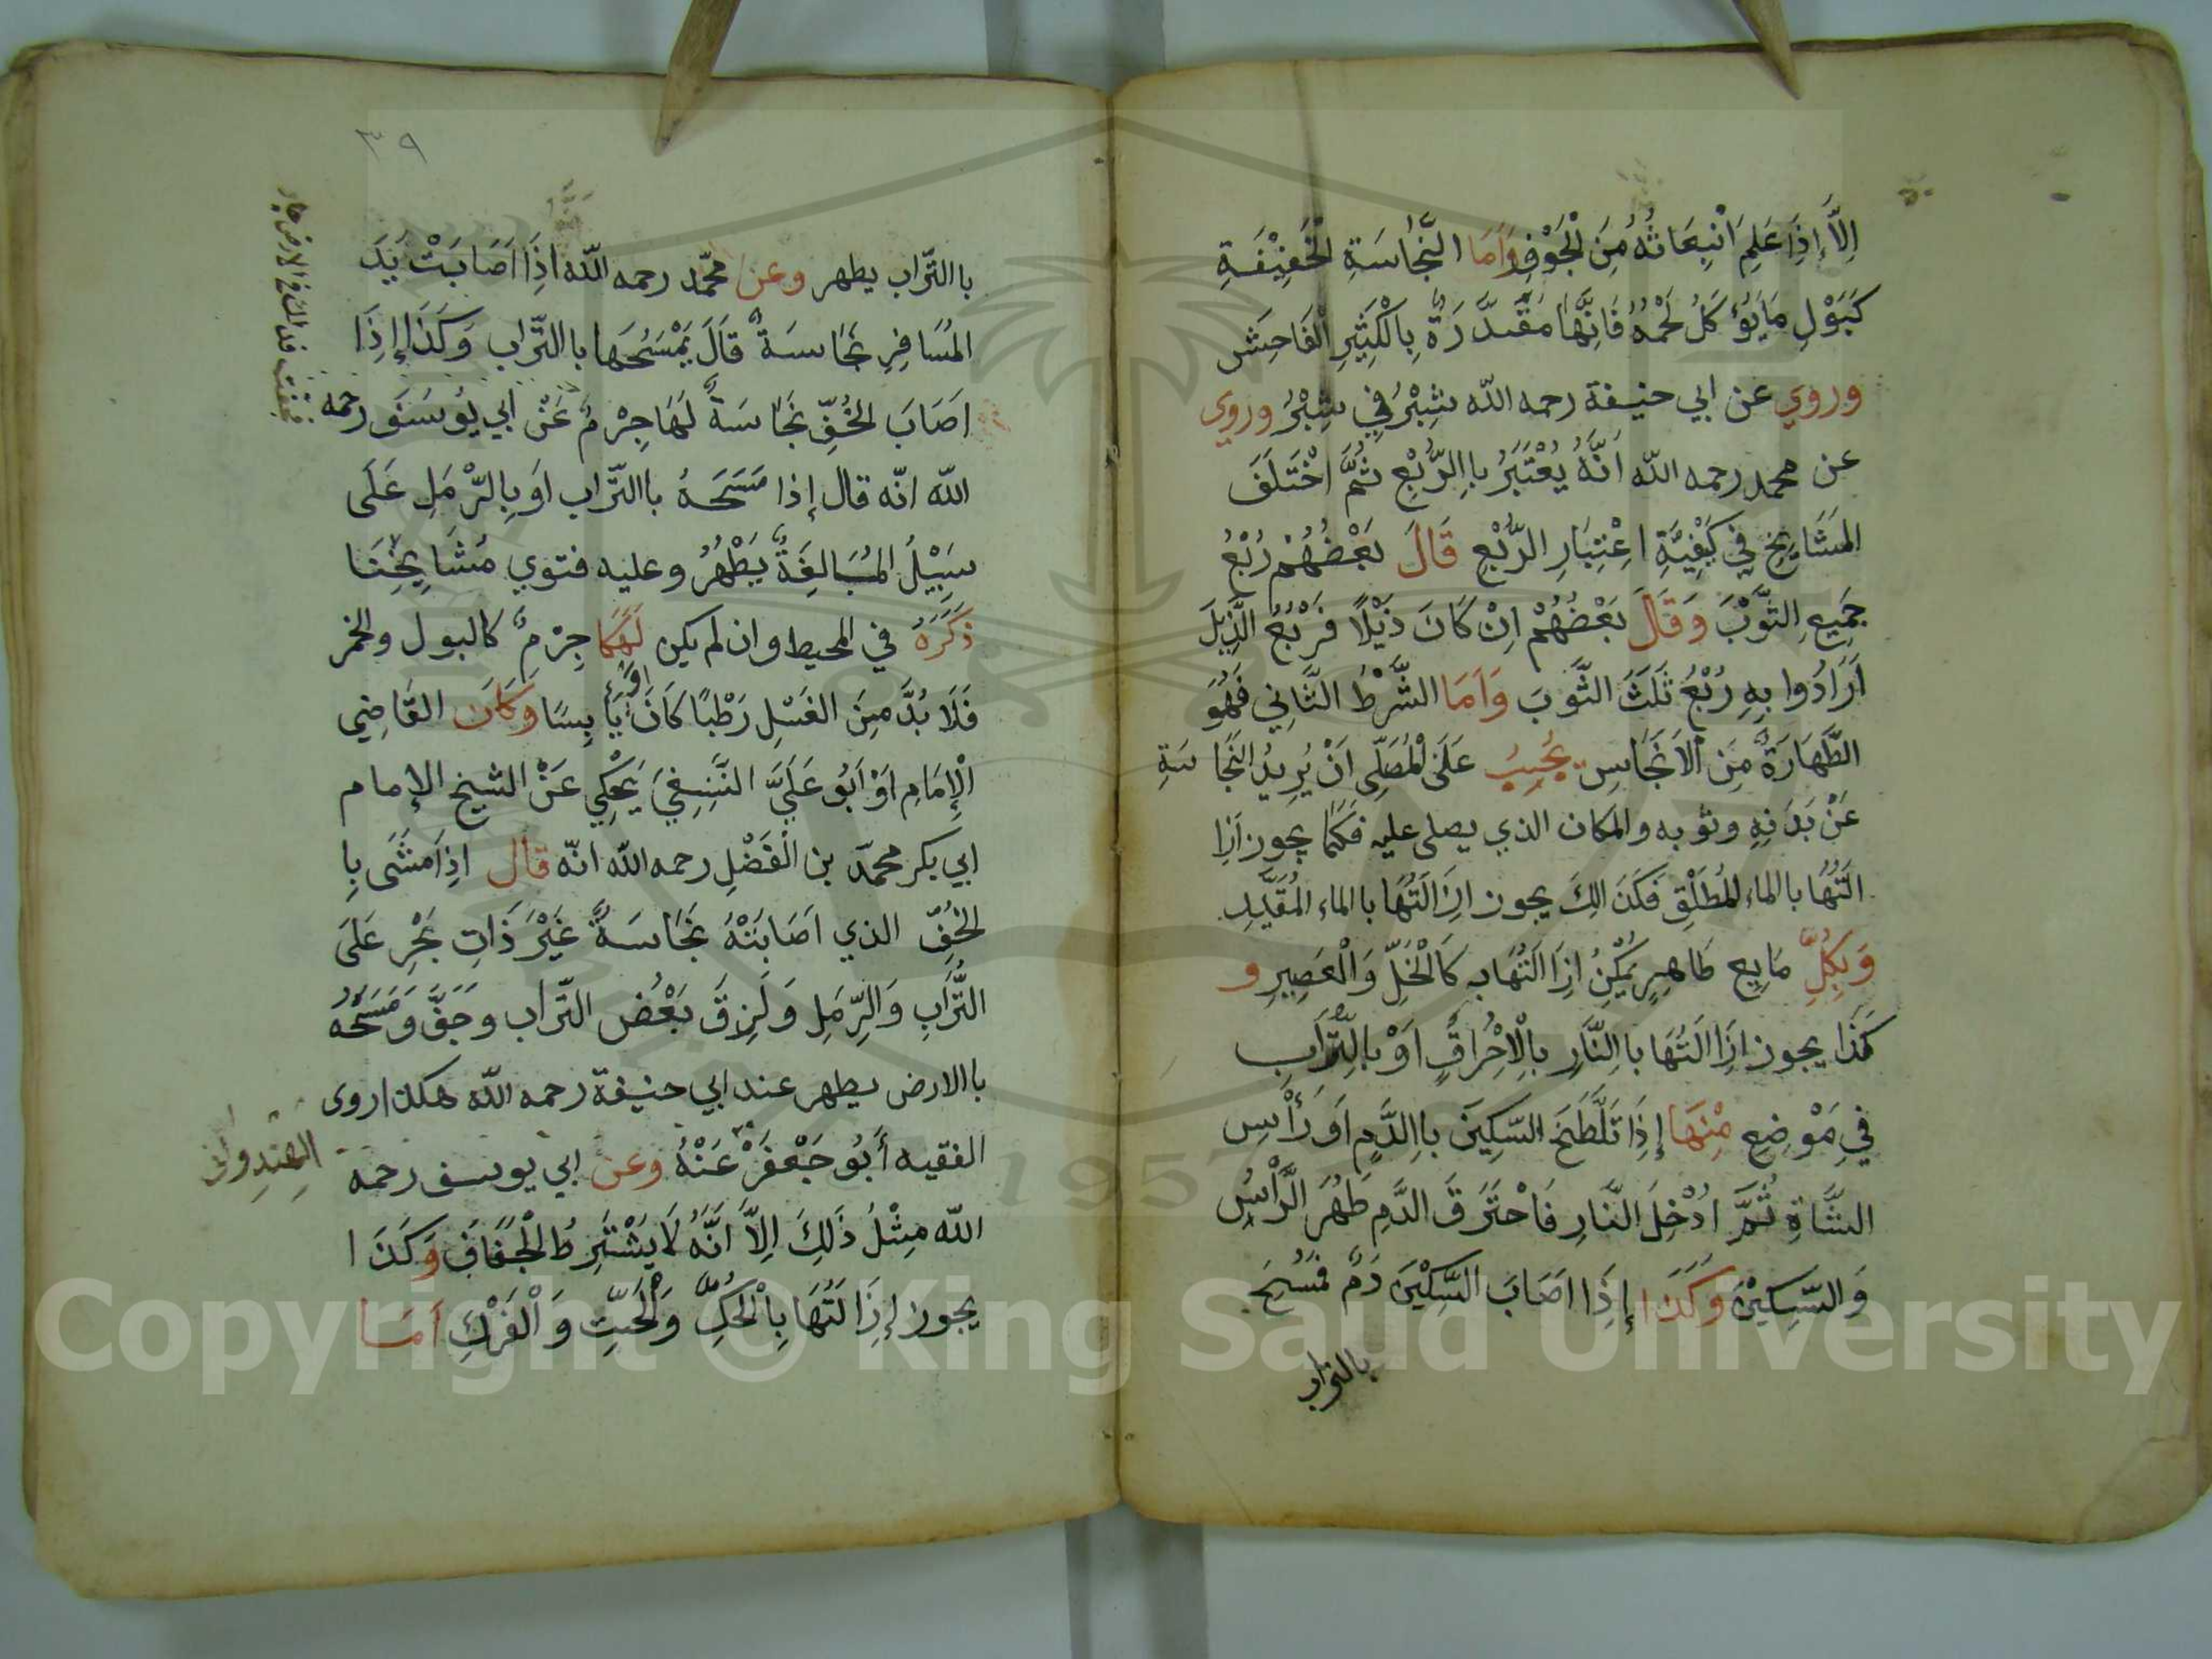 اِلَّا إِذَا عَلِمَ انْبِعَاثُهُ مِنَ الْجَوْفِ وَاَمَا النَّجَاسَةِ الْخَفِيْفَةِ
كَبَوْلِ مَا يُؤْكَلُ لَحْمُهُ فَاِنَّهَا مُقَدَّرَةٌ بِالْكَثِيْرِ الْفَاحِشِ
وروي عن ابي حنيفة رحمه الله شِبْرُ فِي شِبْرُ وروى
عن محمد رحمه الله اَنَّهُ يُعْتَبَرُ بِاالرُّبْعِ ثُمَّ اخْتَلَفَ
المَشَايِخِ فِي كَيْفِيَّةِ اعْتِبَارِ الرُّبْعِ قَالَ بَعْضُهُمْ رُبْعُ
جَمِيعِ الثَّوْبَ وَقَالَ بَعْضُهُمْ اِنْ كَانَ ذَيْلًا فَرُبْعُ الذَّيْلَ
اَرَادُوا بِهِ رُبْعُ ثَلَثَ الثَّوبَ وَاَمَا الشَّرْطُ الثَّانِي فَهُوَ
الطَّهَارَةُ مِنَ الْاَنْجَاسِ يَجِبُ عَلَى الْمُصَلِّى اَنْ يُزِيدُ النَّجَاسَةِ
عَنْ بَدَنِهِ وثوبه والمكان الذي يصلى عليه فَكَمَا يجوز اَزا
الَتُهَا باالماء المُطْلَقِ فَكَذَالِكَ يجوز اِزَالَتُهَا باالماء المُقَيَّدِ
وَبِكُلِّ مَايِعٍ طَاهِرٍ يُمْكِنُ اِزَاالَتُهَا بِهِ كَالْخَلِّ وَالْعَصِيرِ و
كَذَا يجوز اِزَاالَتُهَا باالنَّارِ بِالْاِحْرَاقِ اَوْ باالتُّرَابِ
فِي مَوْضِعٍ مِنْهَا إِذَا تَلَطَّخَ السِّكِينَ باالدَّمِ اَوْ رَأْسِ
الشَّاةِ ثُمَّ اُدْخِلَ النَّارِ فَاحْتَرَقَ الدَّمِ طَهُرَ الرَّأْسُ
وَالسِّكِيْنُ وَكَذَا إِذَا اصَابَ السِّكِيْنَ دَمٌ فَمُسِحَ
بالتراب
٣٩
باالتّراب يطهر وعن محمّد رحمه اللّه اذَا اَصَابَتْ يَدَ
المُسَافِرِ نَجَاسَةٌ قَالَ يَمْسَحُهَا باالتّراب وَكَذَا إِذَا
اَصَابَ الخُفِّ نَجَاسَةٌ لَهَا جِرْمٌ عَنْ ابي يُوسَفَ رحمه
اللّه انّه قال إذا مَسَحَهُ باالتّراب اَو بِالرَّمَلِ عَلَى
سَبِيْلُ المُبَالِغَةُ يَطْهُرُ وعليه فتوي مَشَايِخِنَا
ذَكَرَهُ في المحيط وان لم يكن لَهَا جِرْمٌ كالبول والخمر
فَلَا بُدَّ مِنَ الغَسْلِ رَطْبًا كَانَ اَوْ يَابِسًا وَكَانَ القَاضِي
الْإِمَامِ اَوْ اَبُو عَلَيَّ النَّسَفِيَ يَحْكِي عَنْ الشيخ الإمام
ابي بكر محمّد بن الْفَضْلِ رحمه اللّه انّه قال اذَا مَشَى بِا
لخُفّ الذي اَصَابَتْهُ نَجَاسَةٌ غَيْرَ ذَاتِ جُرِ عَلَى
التُّرَابِ وَالرَّمَلِ وَلَزِقَ بَعْضُ التّراب وجَفَّ وَمَسَحَهُ
باالارض يطهر عند ابي حنيفة رحمه اللّه هكذا روى
الفقيه أَبُو جَعْفَرْ عَنْهُ وعن ابي يوسف رحمه
الهِندِواني
اللّه مِثْلُ ذَلِكَ اِلَّا اَنَّهُ لَا يَشْتَرِطُ الْجَفَافَ وَكَذَا
يجوز إِزَالَتُهَا بِالْحَكِّ وَالْحَتِّ وَالْفَرْكِ اَمَا